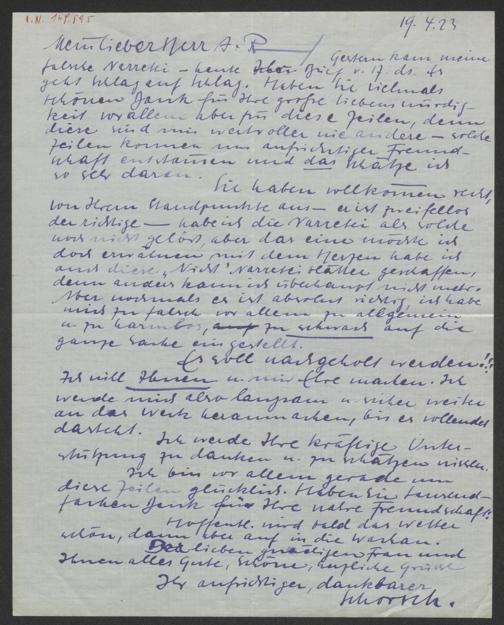 I.N. 149.595
19.4.23
Mein lieber Herr A. R
Gestern kam meine
falsche Narretei – heute Ihr Brief v. 17. ds. Es
geht Schlag auf Schlag. Haben Sie vielmals
schönen Dank für Ihre große Liebenswürdig-
keit vor allem aber für diese Zeilen, denn
diese sind mir wertvoller wie andere – solche
Zeilen können nur aufrichtiger Freund-
schaft entstammen und das schätze ich
so sehr daran.
Sie haben vollkommen recht,
von Ihrem Standpunkte aus – er ist zweifellos
der richtige – habe ich die Narretei als solche
noch nicht gelöst, aber das eine möchte ich
doch erwähnen mit dem Herzen habe ich
auch diese „Nicht" Narretei blätter geschaffen,
denn anders kann ich überhaupt nicht mehr.
Aber nochmals es ist absolut richtig, ich habe
mich zu falsch vor allem zu allgemein
u. zu harmlos, zu schwach auf die
ganze Sache eingestellt.
Es soll nachgeholt werden!!
Ich will Ihnen u. mir Ehre machen. Ich
werde mich also langsam u. sicher weiter
an das Werk heranmachen, bis es vollendet
dasteht.
Ich werde Ihre kräftige Unter-
stützung zu danken u. zu schätzen wissen.
Ich bin vor allem gerade um
diese Zeilen glücklich. Haben Sie tausend-
fachen Dank für Ihre wahre Freundschaft.
Hoffentl. wird bald das Wetter
schön, dann aber auf in die Wachau.
Der lieben gnädigen Frau und
Ihnen alles Gute, schöne, herzliche Grüße
Ihr aufrichtiger, dankbarer
Schorsch.